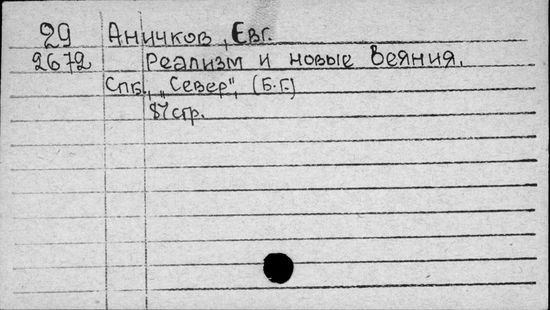 29 Аничков, Евг.
2672 Реализм и новые веяния.
Спб., „Север", (Б.Г.)
87 стр.